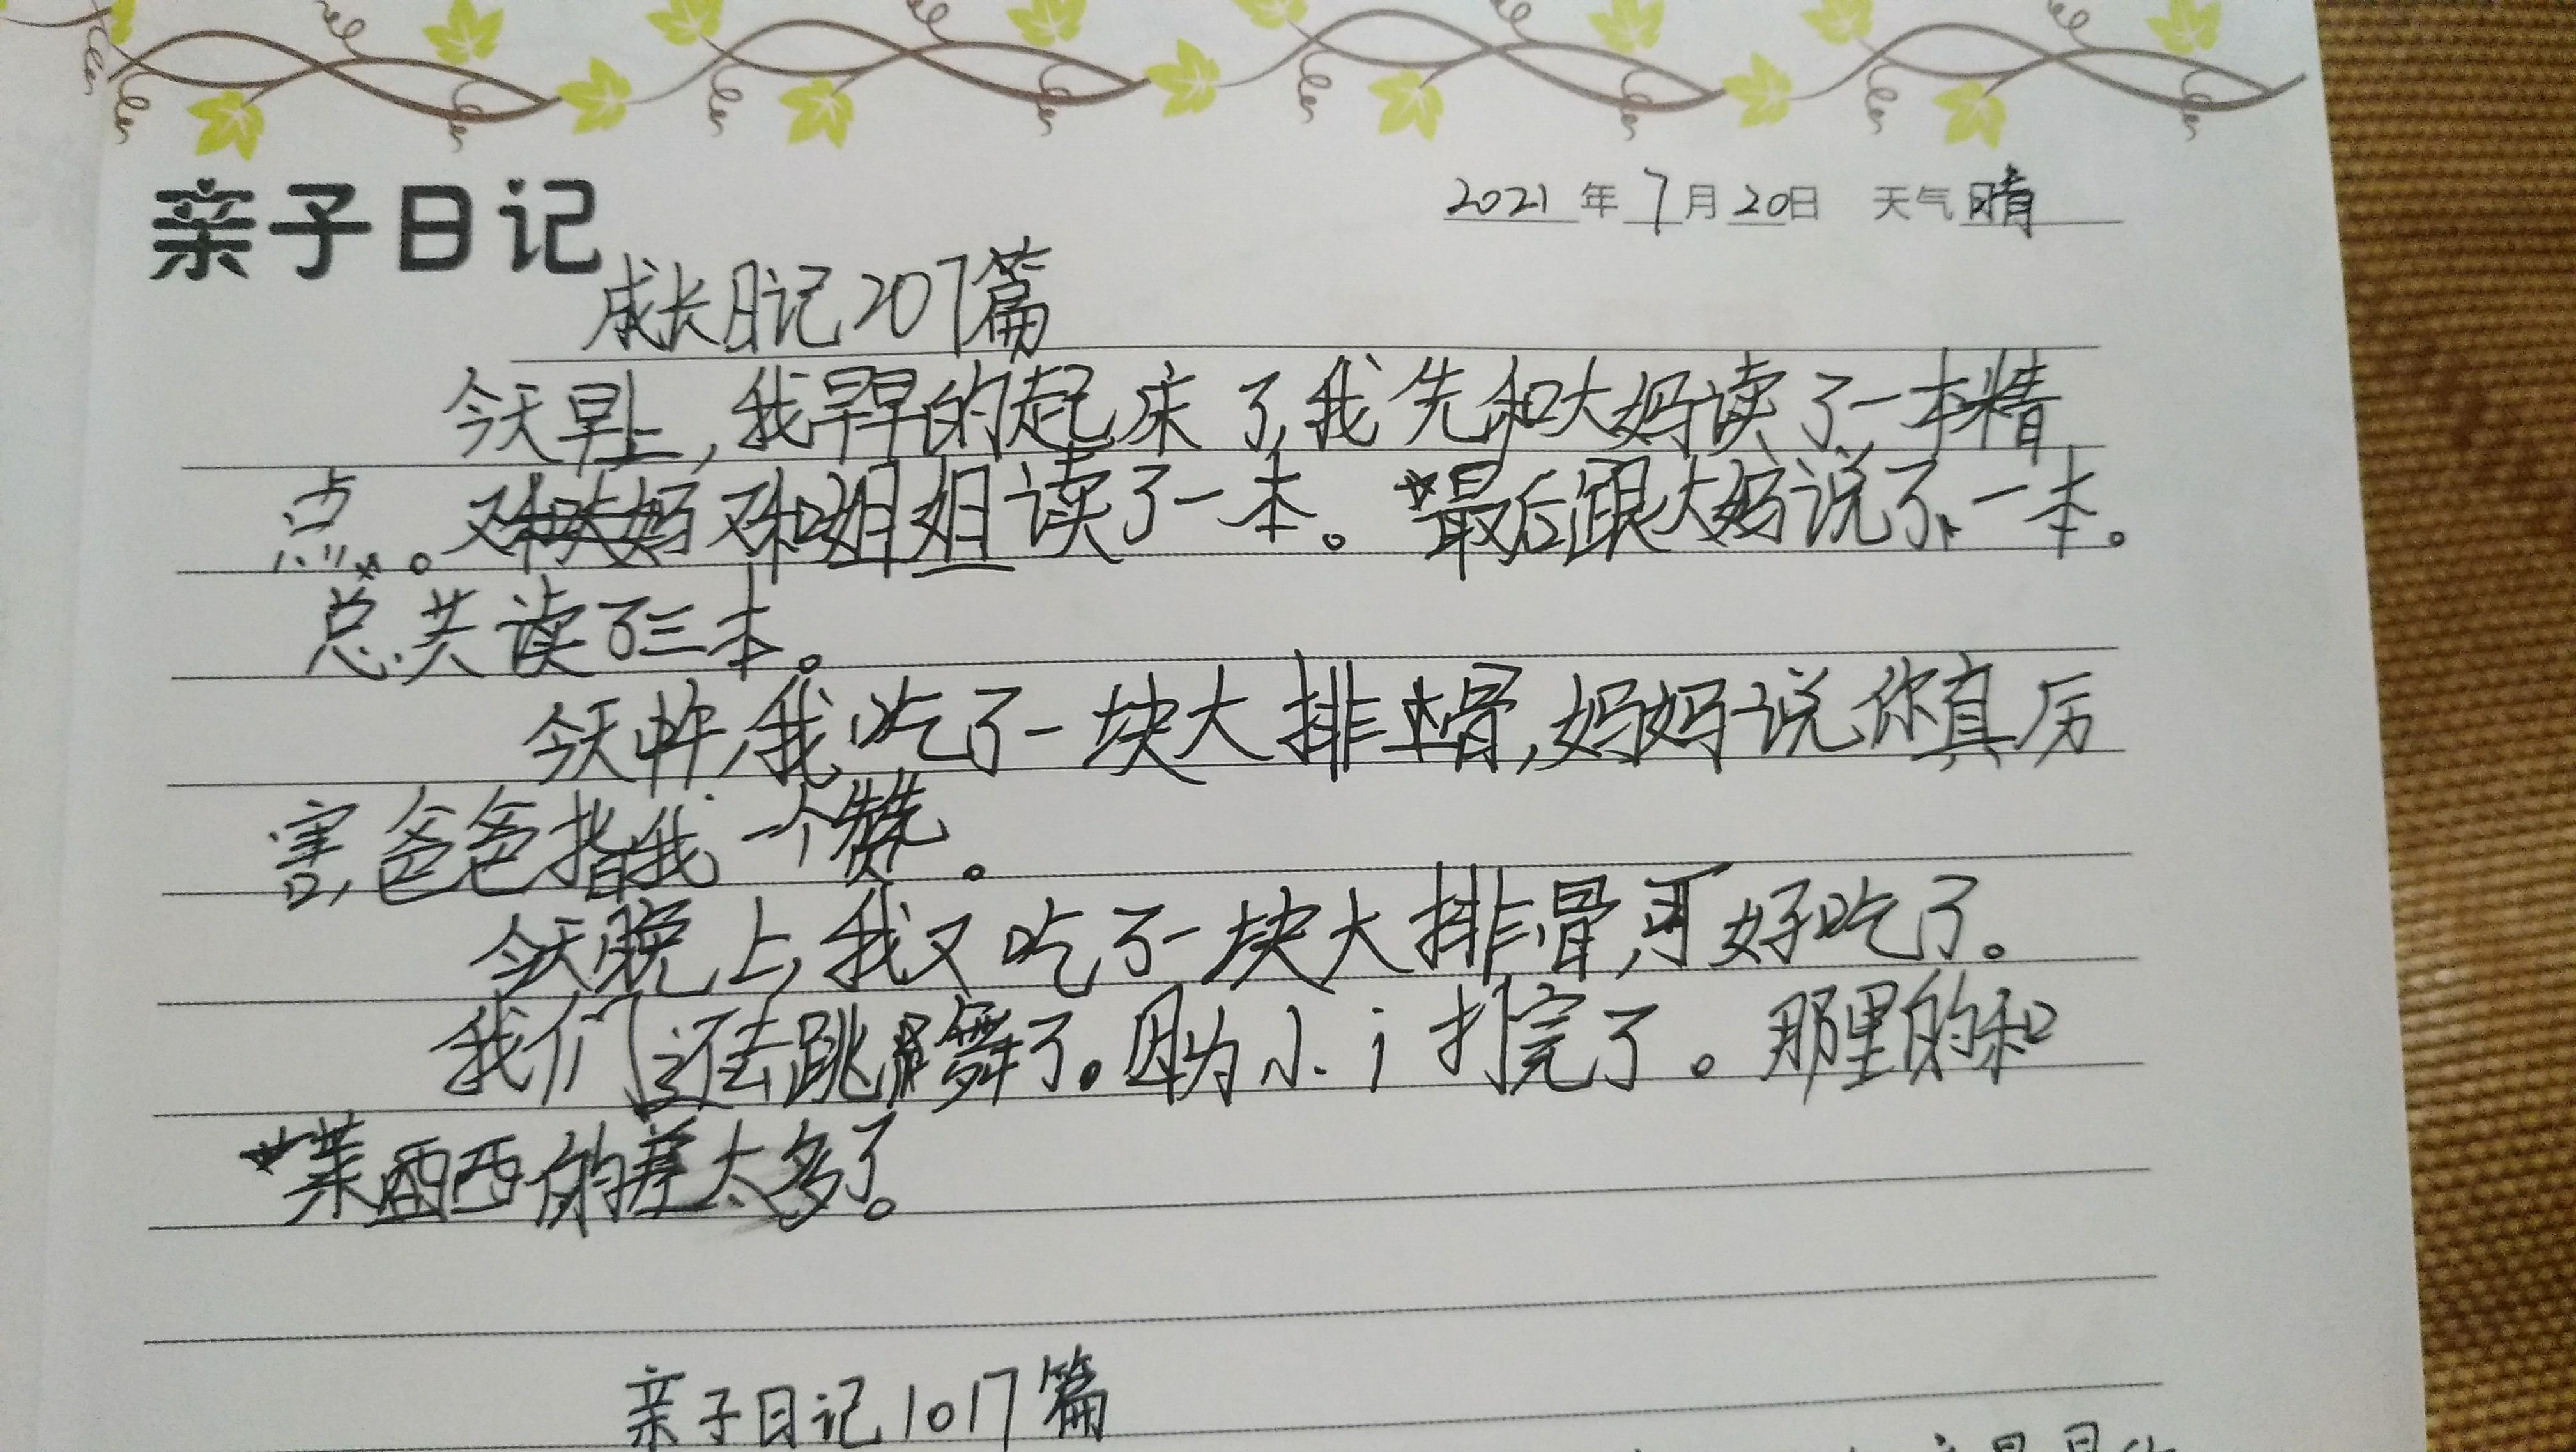 亲子日记
2021年7月20日 天气晴
成长日记207篇
今天早上,我早早的起床了,我先和大妈读了一本精
点。又和姐姐读了一本。最后跟大妈说了一本。
总共读了三本。
今天中午,我吃了一块大排骨,妈妈说你真厉
害,爸爸指我一个赞。
今天晚上,我又吃了一块大排骨,可好吃了。
我们还去跳舞了。因为小i打完了。那里的和
莱西的差太多了。
亲子日记1017篇